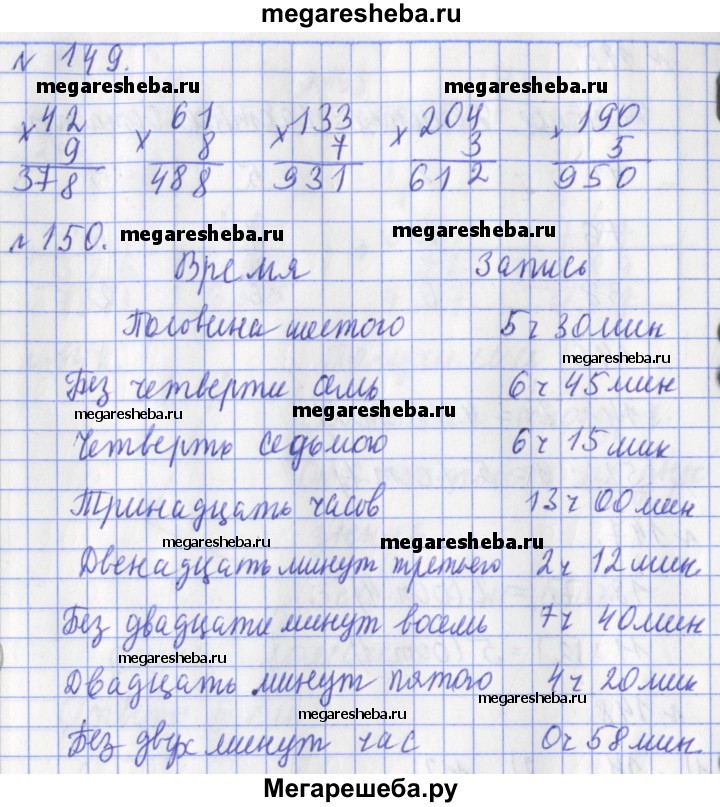 megaresheba.ru
№ 149.
megaresheba.ru megaresheba.ru
×42 ×61 ×133 ×204 ×190
9 8 7 3 5
378 488 931 612 950
№ 150. megaresheba.ru megaresheba.ru
Время Запись
Половина шестого 5 ч 30 мин
megaresheba.ru
Без четверти семь 6 ч 45 мин
megaresheba.ru megaresheba.ru
Четверть седьмого 6 ч 15 мин
Тринадцать часов 13 ч 00 мин
megaresheba.ru megaresheba.ru
Двенадцать минут третьего 2 ч 12 мин
Без двадцати минут восемь 7 ч 40 мин
megaresheba.ru
Двадцать минут пятого 4 ч 20 мин
megaresheba.ru
megaresheba.ru
Без двух минут час 0 ч 58 мин.
megaresheba.ru
Мегарешеба.ру